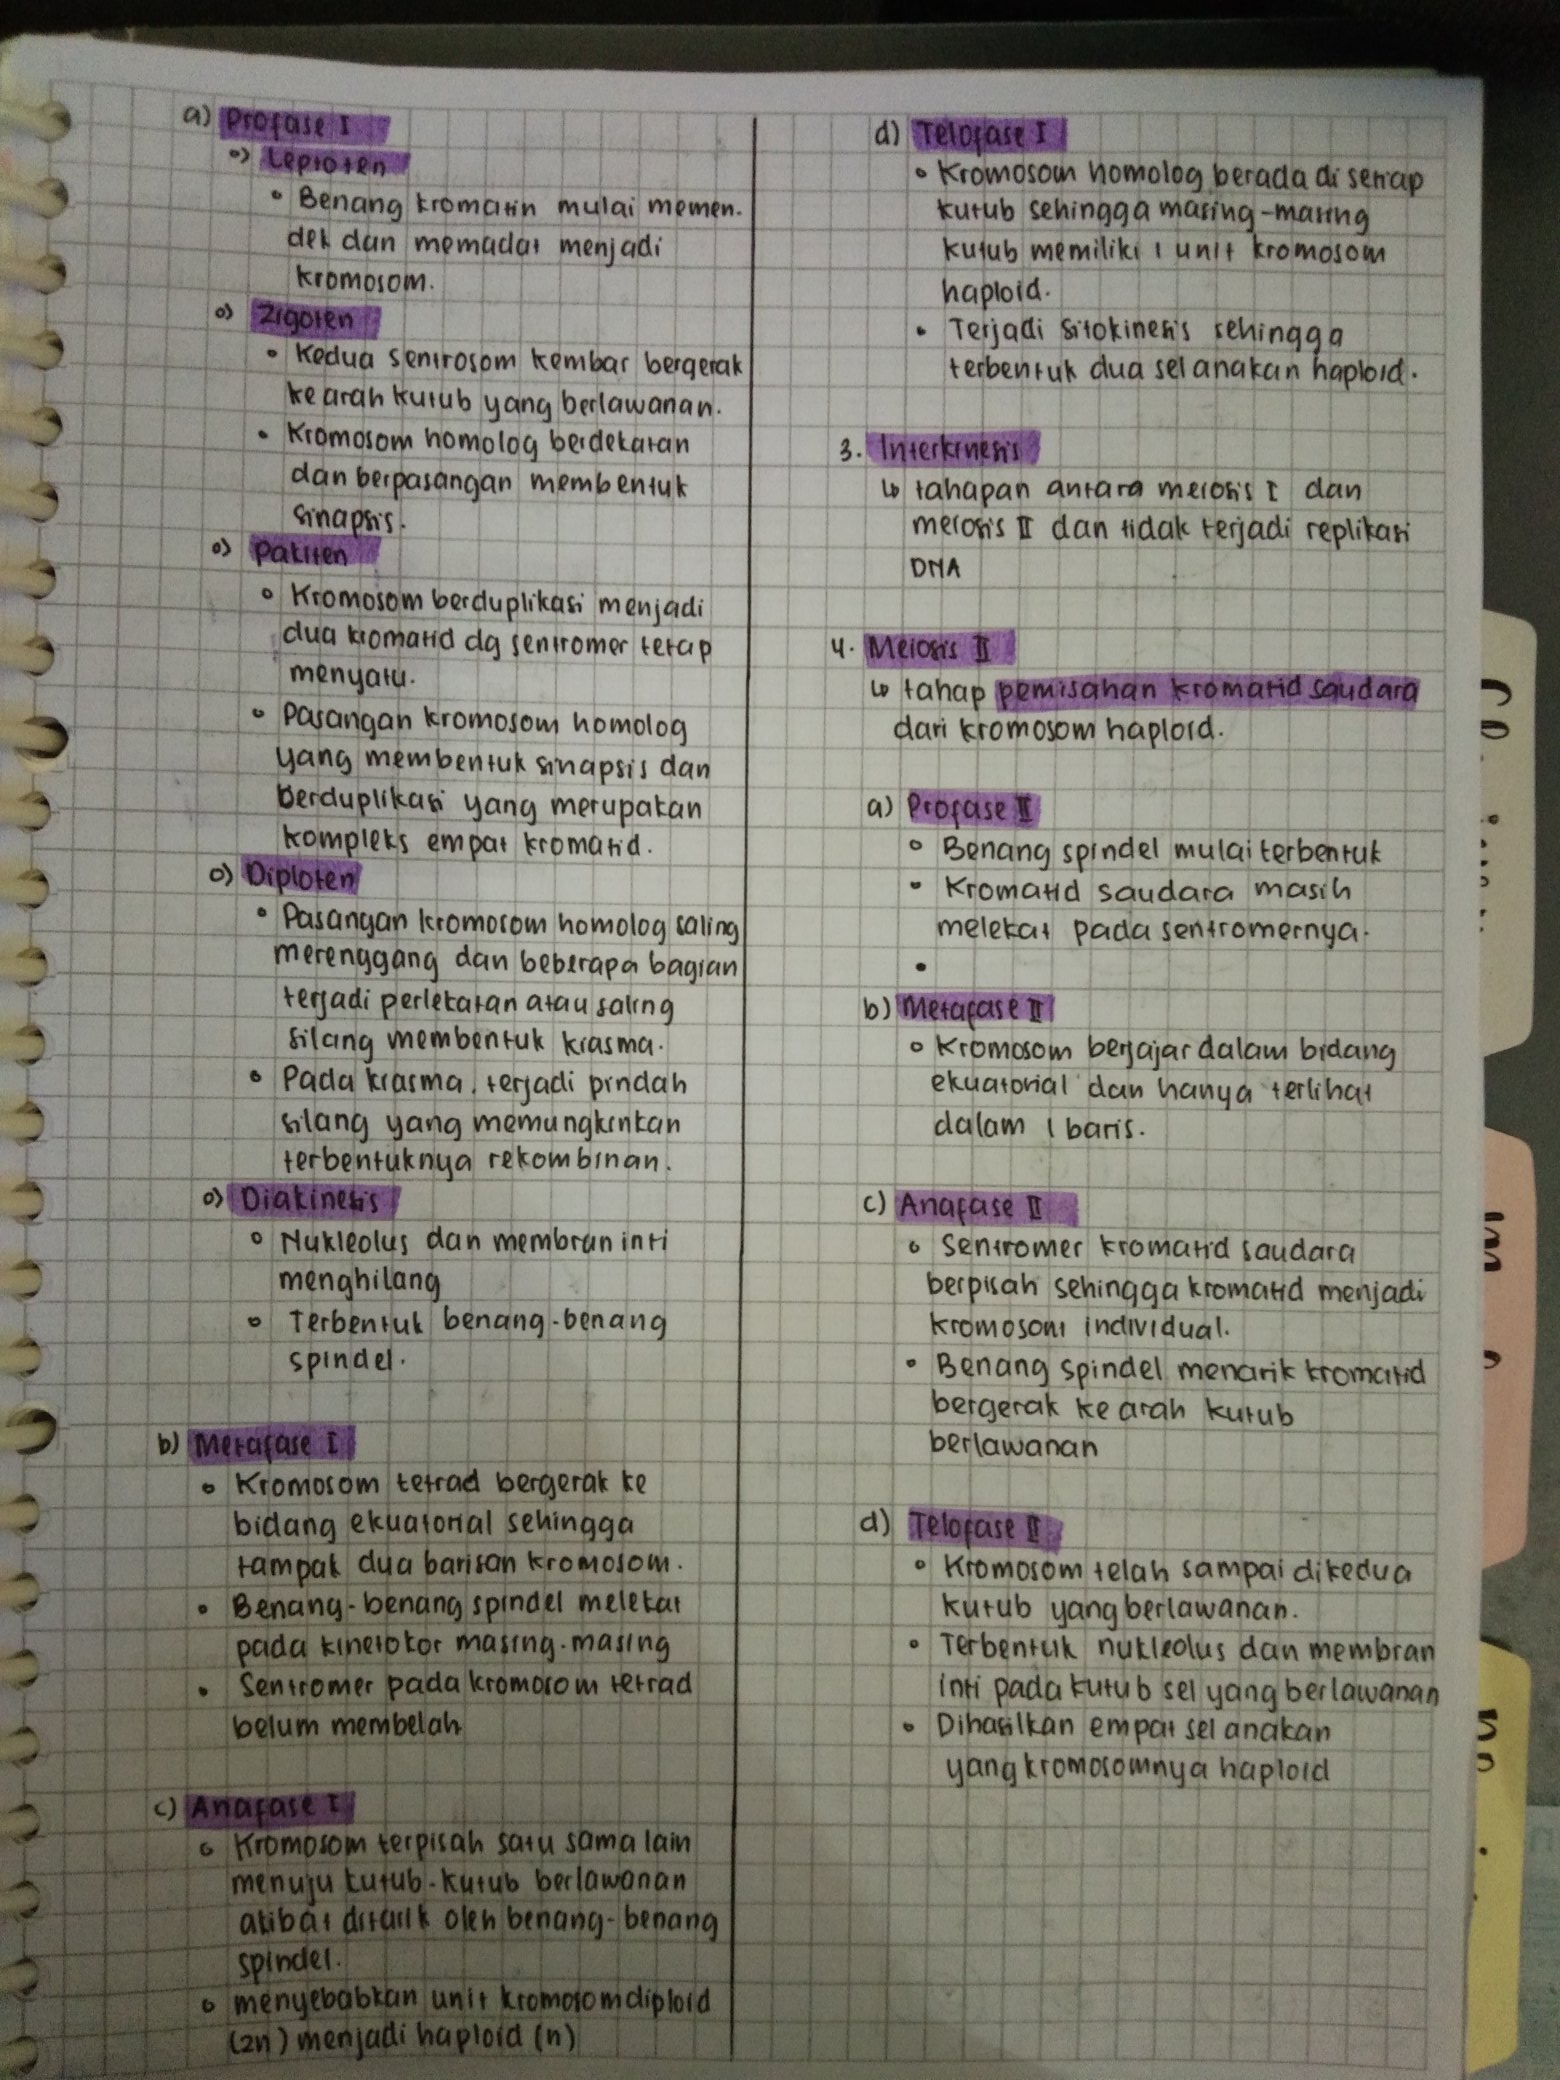 a) Profase I
o) Leptoten
• Benang kromatin mulai memen-
dek dan memadat menjadi
kromosom.
o) Zigoten
• Kedua sentrosom kembar bergerak
ke arah kutub yang berlawanan.
• Kromosom homolog berdekatan
dan berpasangan membentuk
sinapsis.
o) Pakiten
• Kromosom berduplikasi menjadi
dua kromatid dg sentromer tetap
menyatu.
• Pasangan kromosom homolog
yang membentuk sinapsis dan
berduplikasi yang merupakan
kompleks empat kromatid.
o) Diploten
• Pasangan kromosom homolog saling
merenggang dan beberapa bagian
terjadi perlekatan atau saling
silang membentuk kiasma.
• Pada kiasma, terjadi pindah
silang yang memungkinkan
terbentuknya rekombinan.
o) Diakinesis
• Nukleolus dan membran inti
menghilang
• Terbentuk benang-benang
spindel.
b) Metafase I
• Kromosom tetrad bergerak ke
bidang ekuatorial sehingga
tampak dua barisan kromosom.
• Benang-benang spindel melekat
pada kinetokor masing-masing
• Sentromer pada kromosom tetrad
belum membelah
c) Anafase I
• Kromosom terpisah satu sama lain
menuju kutub-kutub berlawanan
akibat ditarik oleh benang-benang
spindel.
• menyebabkan unit kromosom diploid
(2n) menjadi haploid (n)
d) Telofase I
• Kromosom homolog berada di setiap
kutub sehingga masing-masing
kutub memiliki 1 unit kromosom
haploid.
• Terjadi sitokinesis sehingga
terbentuk dua sel anakan haploid.
3. Interkinesis
↳ tahapan antara meiosis I dan
meiosis II dan tidak terjadi replikasi
DNA
4. Meiosis II
↳ tahap pemisahan kromatid saudara
dari kromosom haploid.
a) Profase II
• Benang spindel mulai terbentuk
• Kromatid saudara masih
melekat pada sentromernya.
•
b) Metafase II
• Kromosom berjajar dalam bidang
ekuatorial dan hanya terlihat
dalam 1 baris.
c) Anafase II
• Sentromer kromatid saudara
berpisah sehingga kromatid menjadi
kromosom individual.
• Benang spindel menarik kromatid
bergerak ke arah kutub
berlawanan
d) Telofase II
• Kromosom telah sampai dikedua
kutub yang berlawanan.
• Terbentuk nukleolus dan membran
inti pada kutub sel yang berlawanan
• Dihasilkan empat sel anakan
yang kromosomnya haploid